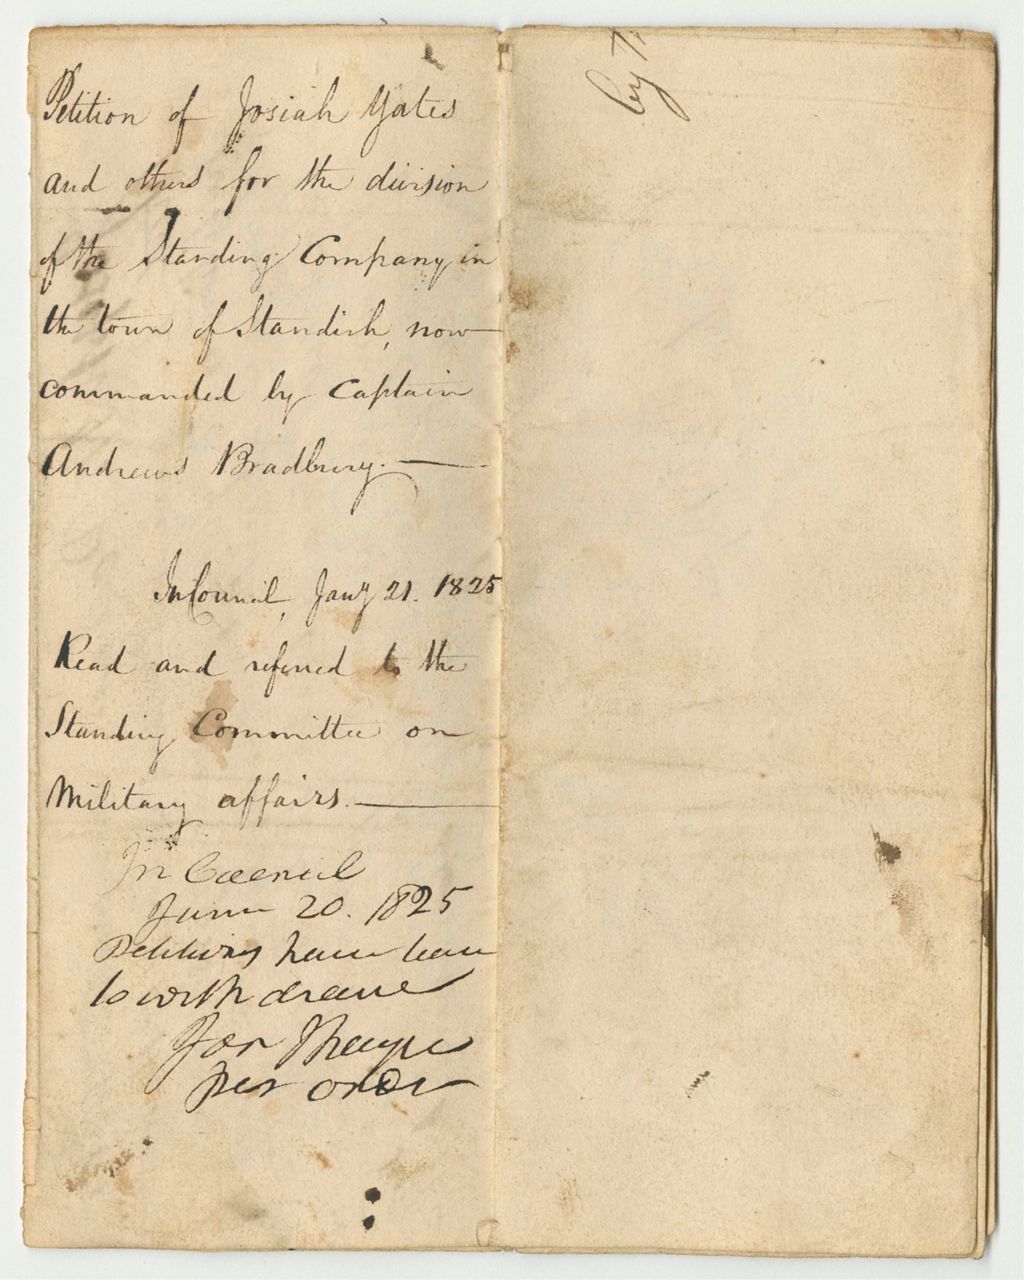 Petition of Josiah Yates
and others for the division
of the Standing Company in
the town of Standish, now
commanded by Captain
Andrews Bradbury.
In Council, Jany 21. 1825
Read and referred to the
Standing Committee on
Military affairs.
In Council
June 20. 1825
Petitioners have leave
to withdrawe
per order
by